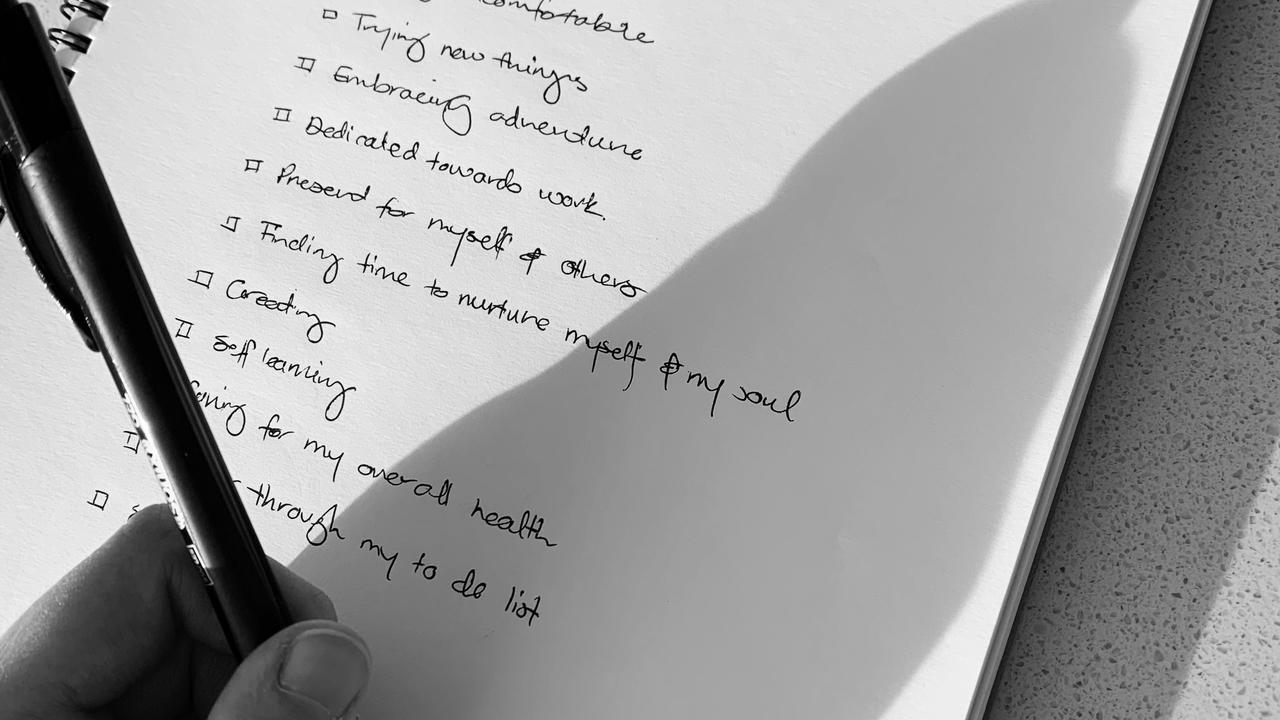 comfortable
Trying new things
Embracing adventure
Dedicated towards work.
Present for myself & others
Finding time to nurture myself & my soul
Creating
Self learning
for my overall health
through my to do list